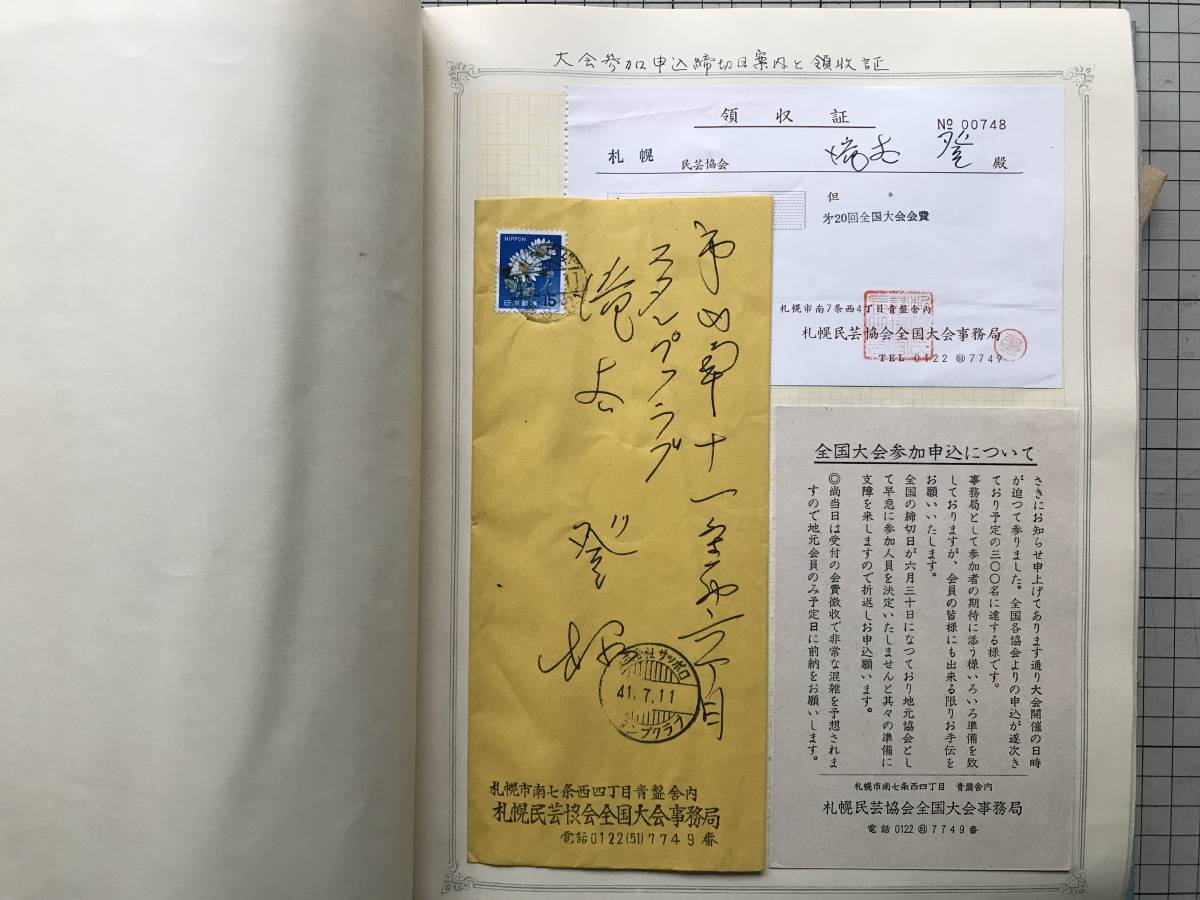 大会参加申込締切日案内と領収証
領収証
No 00748
札幌 民芸協会 登 殿
但
才20回全国大会会費
札幌市南7条西4丁目青盤舎内
札幌民芸協会全国大会事務局
TEL 0422 ㊿ 7749
NIPPON
15
日本郵便
市内南十一条西六丁目
スタンプクラブ
登 様
サッポロ
41.7.11
札幌市南七条西四丁目青盤舎内
札幌民芸協会全国大会事務局
電話0122(51)7749番
全国大会参加申込について
さきにお知らせ申上げてあります通り大会開催の日時
が迫つて参りました。全国各協会よりの申込が遂次き
ており予定の三〇〇名に達する様です。
事務局として参加者の期待に添う様いろいろ準備を致
しておりますが、会員の皆様にも出来る限りお手伝を
お願いいたします。
全国の締切日が六月三十日になつており地元協会とし
て早急に参加人員を決定いたしませんと其々の準備に
支障を来しますので折返しお申込願います。
◎尚当日は受付の会費徴収で非常な混雑を予想されま
すので地元会員のみ予定日に前納をお願いします。
札幌市南七条西四丁目 青盤舎内
札幌民芸協会全国大会事務局
電話 0122 7749番